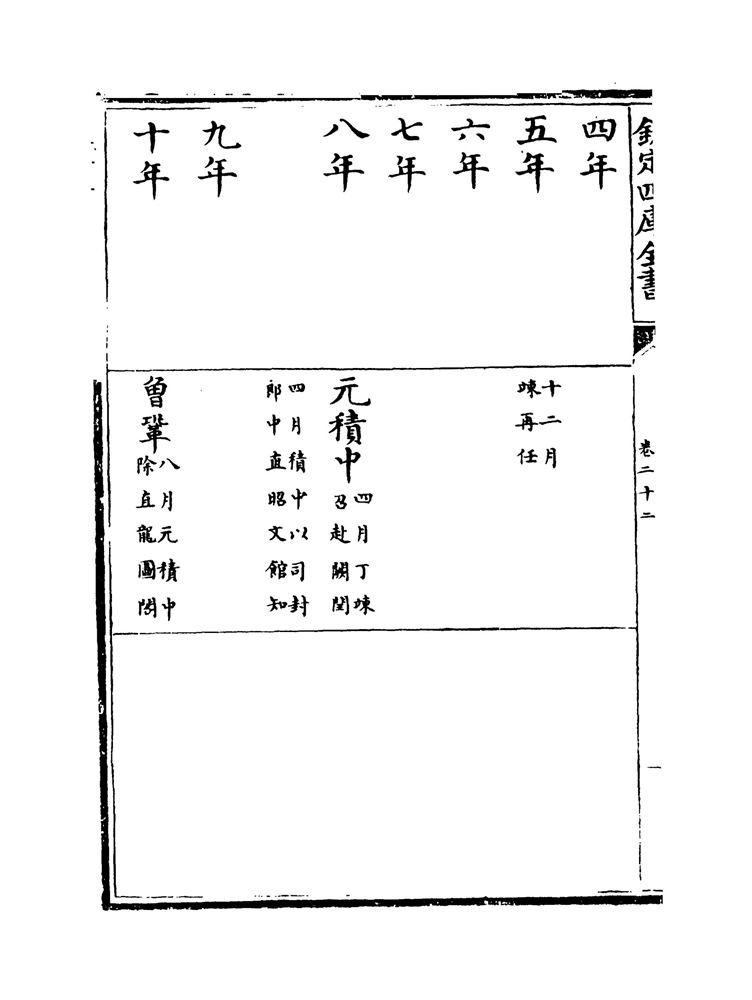 欽定四庫全書
卷二十二
四年
五年
十二月
竦再任
六年
七年
八年
元積中
四月丁竦
召赴闕閏
四月積中以司封
郎中直昭文館知
九年
十年
曾鞏
八月元積中
除直龍圖閣